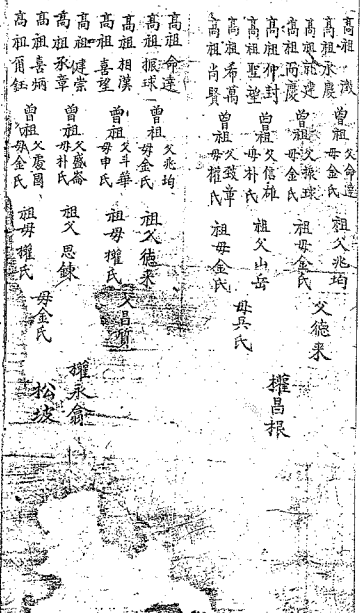 高祖 澂
高祖永慶
高祖龍建
高祖而慶
高祖仲封
高祖聖望
高祖希萬
高祖尚賢
曾祖父命達
母金氏
曾祖父振球
母金氏
曾祖父信雄
母朴氏
曾祖父致章
母權氏
祖父兆均
祖母金氏
祖父山岳
祖母金氏
父德来
母吳氏
權昌根
高祖命達
高祖振球
高祖相漢
高祖喜望
高祖健崇
高祖承章
高祖喜炳
高祖爾鈺
曾祖父兆均
母金氏
曾祖父斗華
母申氏
曾祖父盛崙
母朴氏
曾祖父慶國
母金氏
祖父德来
祖母權氏
祖父思鍊
祖母權氏
父昌
母金氏
權永翕
松坡